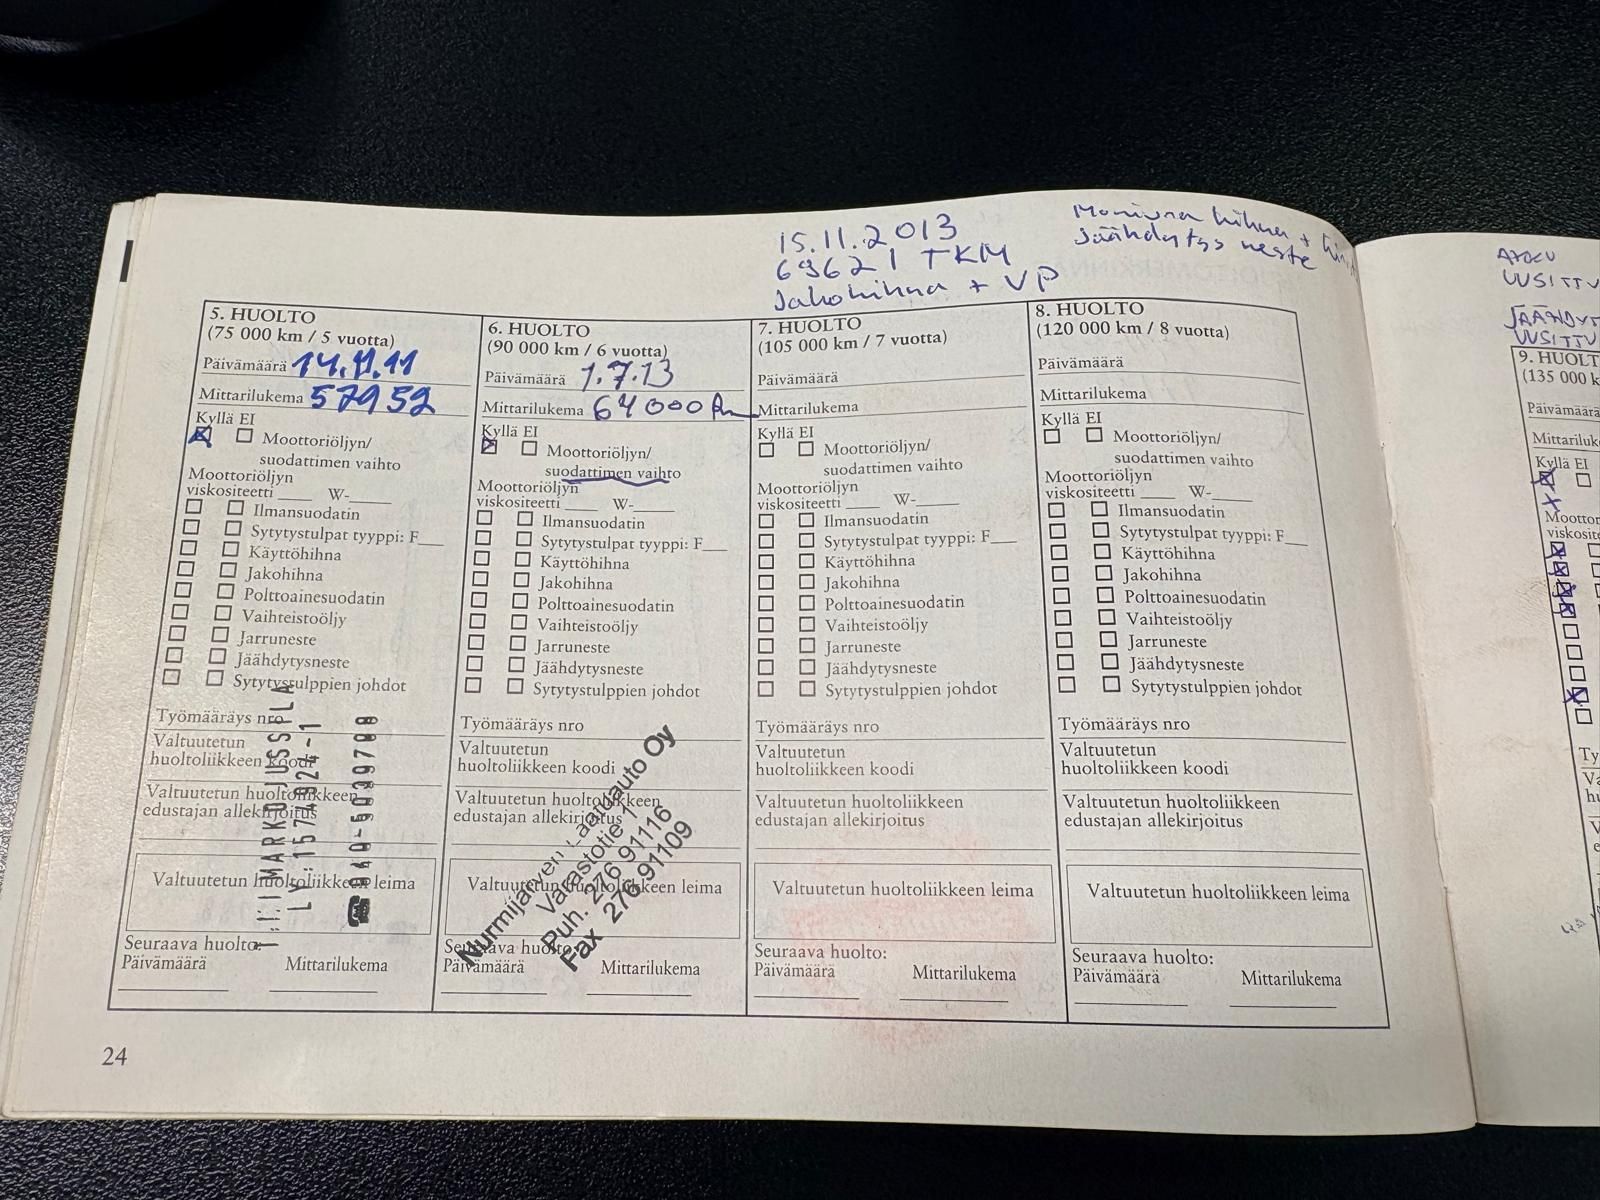 15.11.2013
69621 TKM
Jakohihna + VP
Moniura hihna +
Jäähdytys neste
5. HUOLTO
(75 000 km / 5 vuotta)
Päivämäärä 14.11.11
Mittarilukema 57952
Kyllä EI
Moottoriöljyn/
suodattimen vaihto
Moottoriöljyn
viskositeetti ____ W-____
Ilmansuodatin
Sytytystulpat tyyppi: F___
Käyttöhihna
Jakohihna
Polttoainesuodatin
Vaihteistoöljy
Jarruneste
Jäähdytysneste
Sytytystulppien johdot
Työmääräys nro
Valtuutetun
huoltoliikkeen koodi
Valtuutetun huoltoliikkeen
edustajan allekirjoitus
Valtuutetun huoltoliikkeen leima
LY:1574924-1
☎040-5039788
Seuraava huolto:
Päivämäärä Mittarilukema
6. HUOLTO
(90 000 km / 6 vuotta)
Päivämäärä 1.7.13
Mittarilukema 64000 km
Kyllä EI
Moottoriöljyn/
suodattimen vaihto
Moottoriöljyn
viskositeetti ____ W-____
Ilmansuodatin
Sytytystulpat tyyppi: F___
Käyttöhihna
Jakohihna
Polttoainesuodatin
Vaihteistoöljy
Jarruneste
Jäähdytysneste
Sytytystulppien johdot
Työmääräys nro
Valtuutetun
huoltoliikkeen koodi
Valtuutetun huoltoliikkeen
edustajan allekirjoitus
Valtuutetun huoltoliikkeen leima
Nurmijärven Laatuauto Oy
Varastotie 1
Puh. 276 91116
Fax 276 91109
Seuraava huolto:
Päivämäärä Mittarilukema
7. HUOLTO
(105 000 km / 7 vuotta)
Päivämäärä
Mittarilukema
Kyllä EI
Moottoriöljyn/
suodattimen vaihto
Moottoriöljyn
viskositeetti ____ W-____
Ilmansuodatin
Sytytystulpat tyyppi: F___
Käyttöhihna
Jakohihna
Polttoainesuodatin
Vaihteistoöljy
Jarruneste
Jäähdytysneste
Sytytystulppien johdot
Työmääräys nro
Valtuutetun
huoltoliikkeen koodi
Valtuutetun huoltoliikkeen
edustajan allekirjoitus
Valtuutetun huoltoliikkeen leima
Seuraava huolto:
Päivämäärä Mittarilukema
8. HUOLTO
(120 000 km / 8 vuotta)
Päivämäärä
Mittarilukema
Kyllä EI
Moottoriöljyn/
suodattimen vaihto
Moottoriöljyn
viskositeetti ____ W-____
Ilmansuodatin
Sytytystulpat tyyppi: F___
Käyttöhihna
Jakohihna
Polttoainesuodatin
Vaihteistoöljy
Jarruneste
Jäähdytysneste
Sytytystulppien johdot
Työmääräys nro
Valtuutetun
huoltoliikkeen koodi
Valtuutetun huoltoliikkeen
edustajan allekirjoitus
Valtuutetun huoltoliikkeen leima
Seuraava huolto:
Päivämäärä Mittarilukema
24
UUSITTU
JÄÄHDYT
UUSITTU
9. HUOLT
(135 000 k
Päivämäärä
Mittariluk
Kyllä EI
Moottor
viskosite